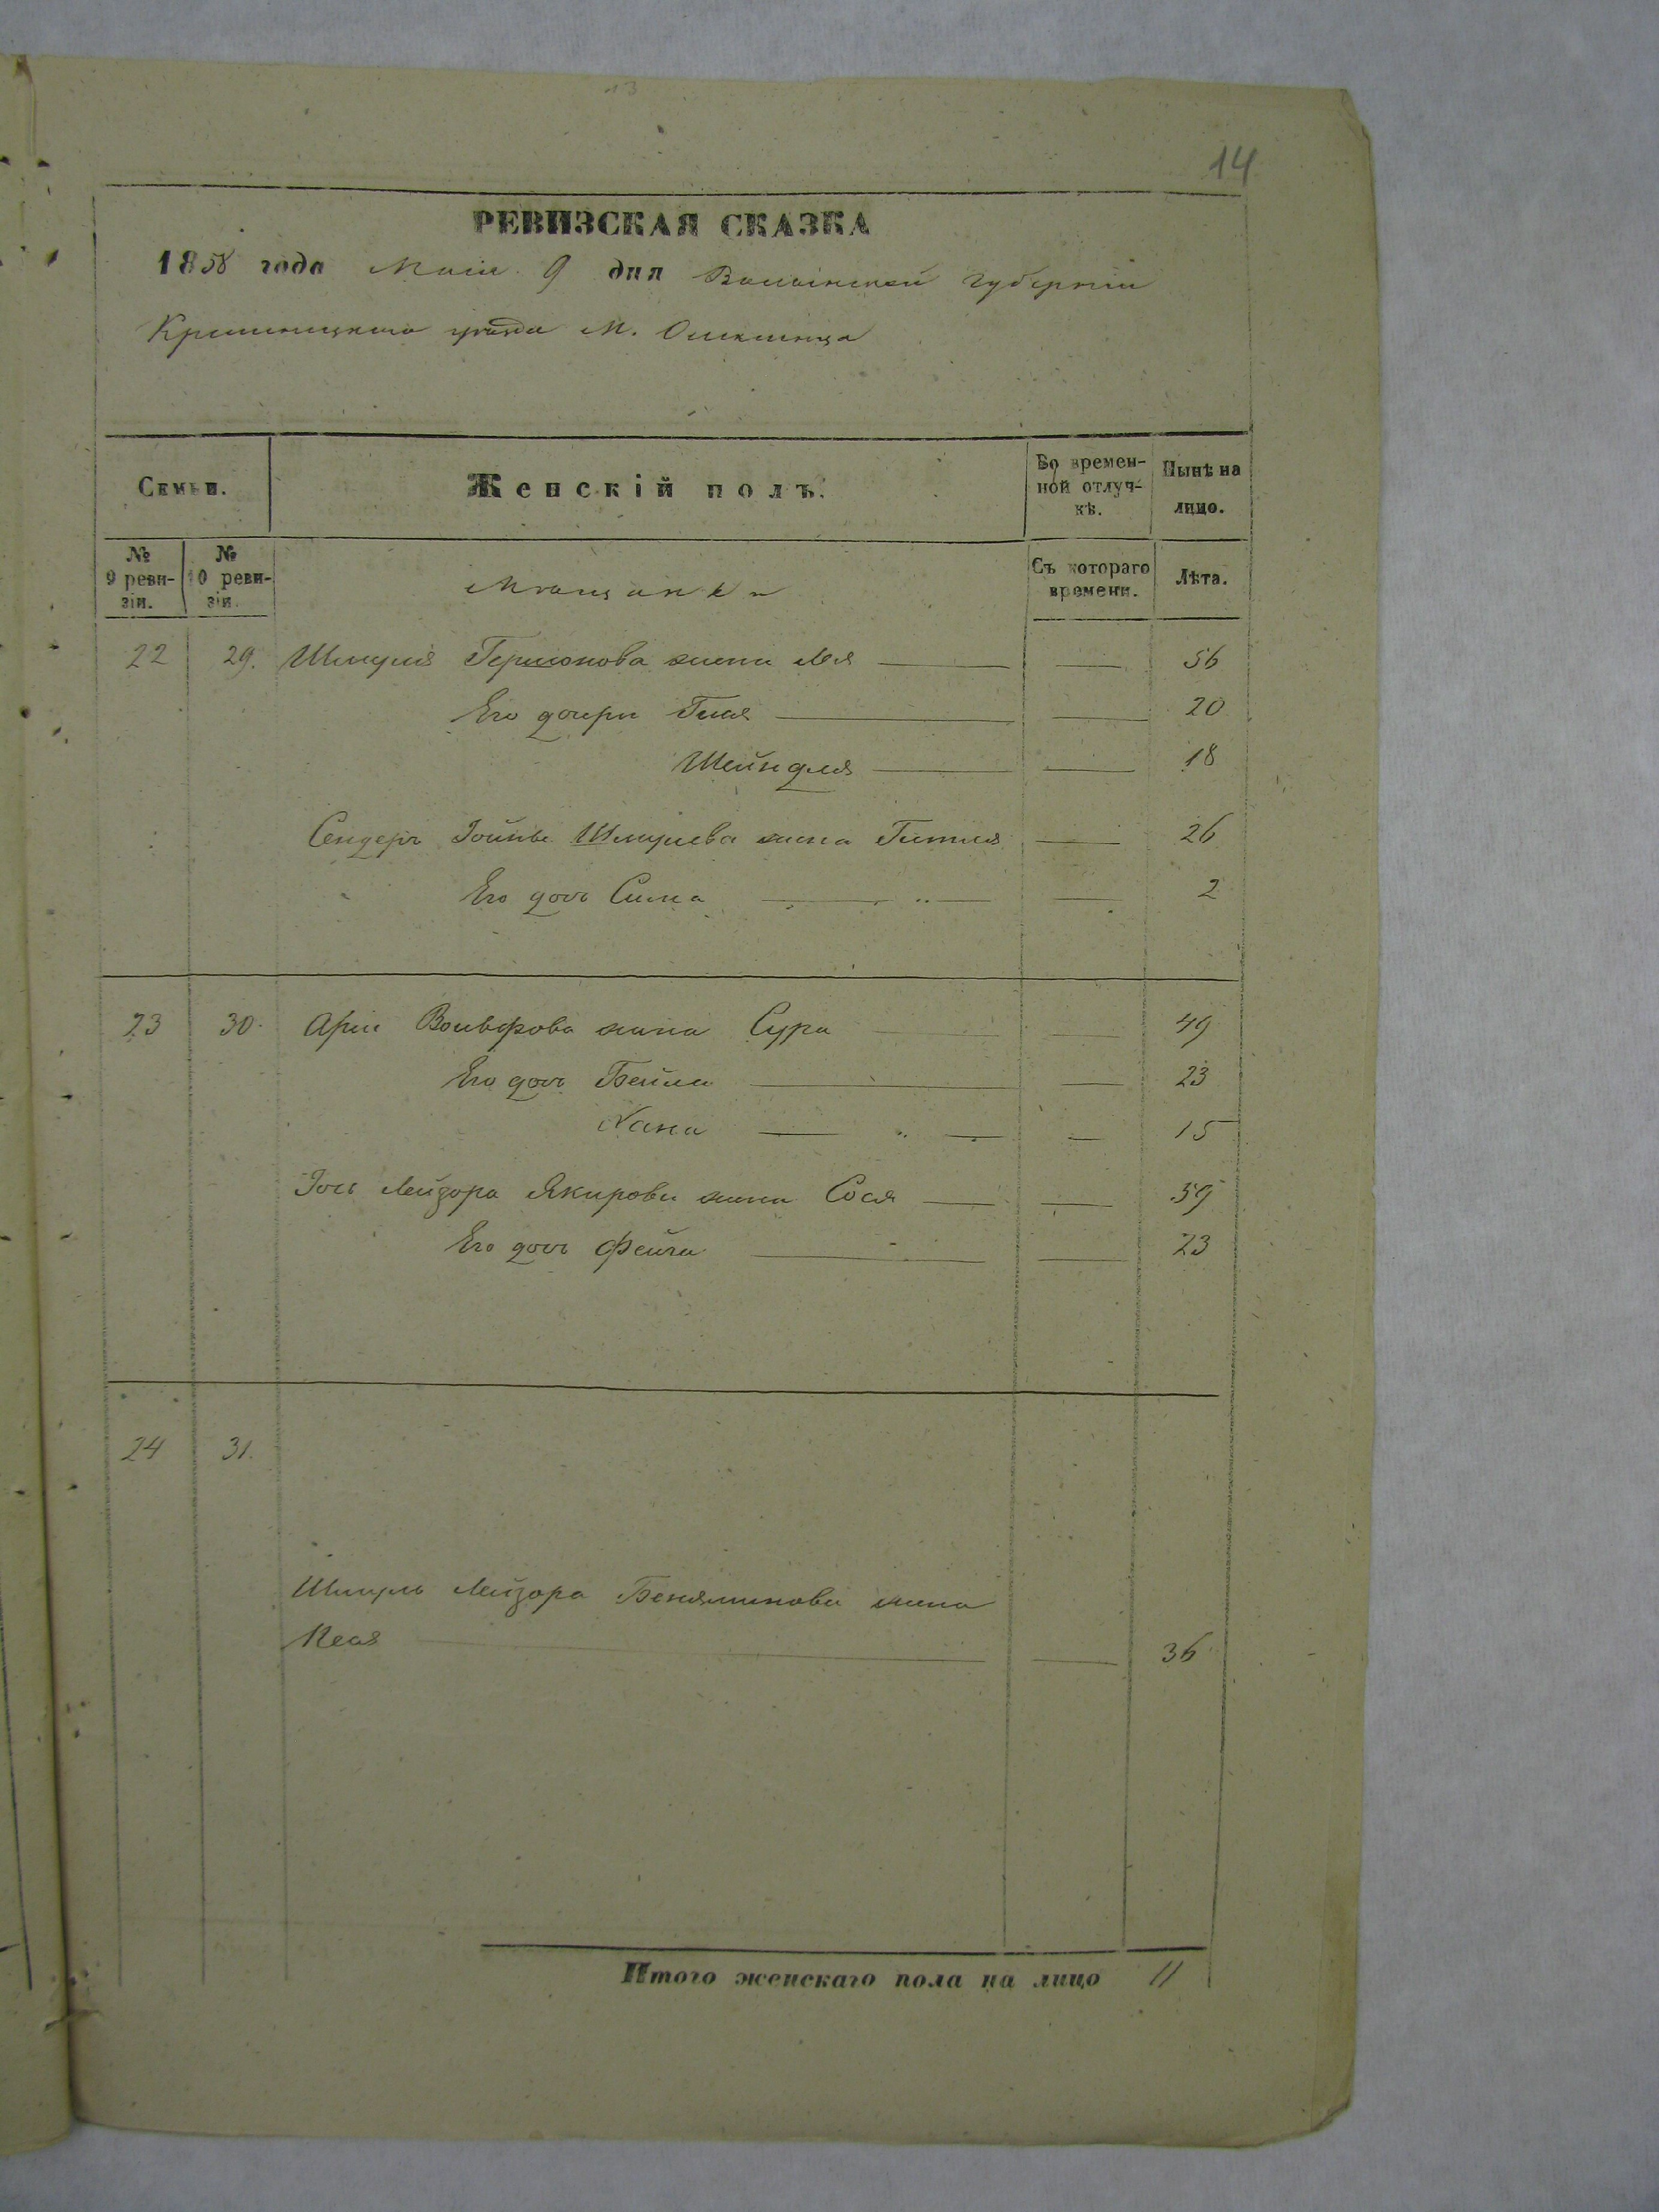 14
РЕВИЗСКАЯ СКАЗКА
1858 года Маія 9 дня Волынской губерніи
Кременецкаго уѣзда М. Олексинца
Семьи. Женскій полъ. Во времен-ной отлуч-кѣ. Нынѣ на лицо.
№ 9 реви-зіи. № 10 реви-зіи. Мѣщанки Съ котораго времени. Лѣта.
22 29. Шмуля Гершонова жена Лея — — 56
Его дочери Гися — — 20
Шейндля — — 18
Сендеръ Іойны Шмулева жена Гитля — 26
Его дочь Сима — — 2
23 30. Арии Вольфова жена Сура — — 49
Его дочь Бейла — — 23
Хана — — 15
Іось Лейзора Якирова жена Сося — — 59
Его дочь Фейга — — 23
24 31.
Шмуль Лейзора Беняминова жена
Песя — — 36
Итого женскаго пола на лицо 11